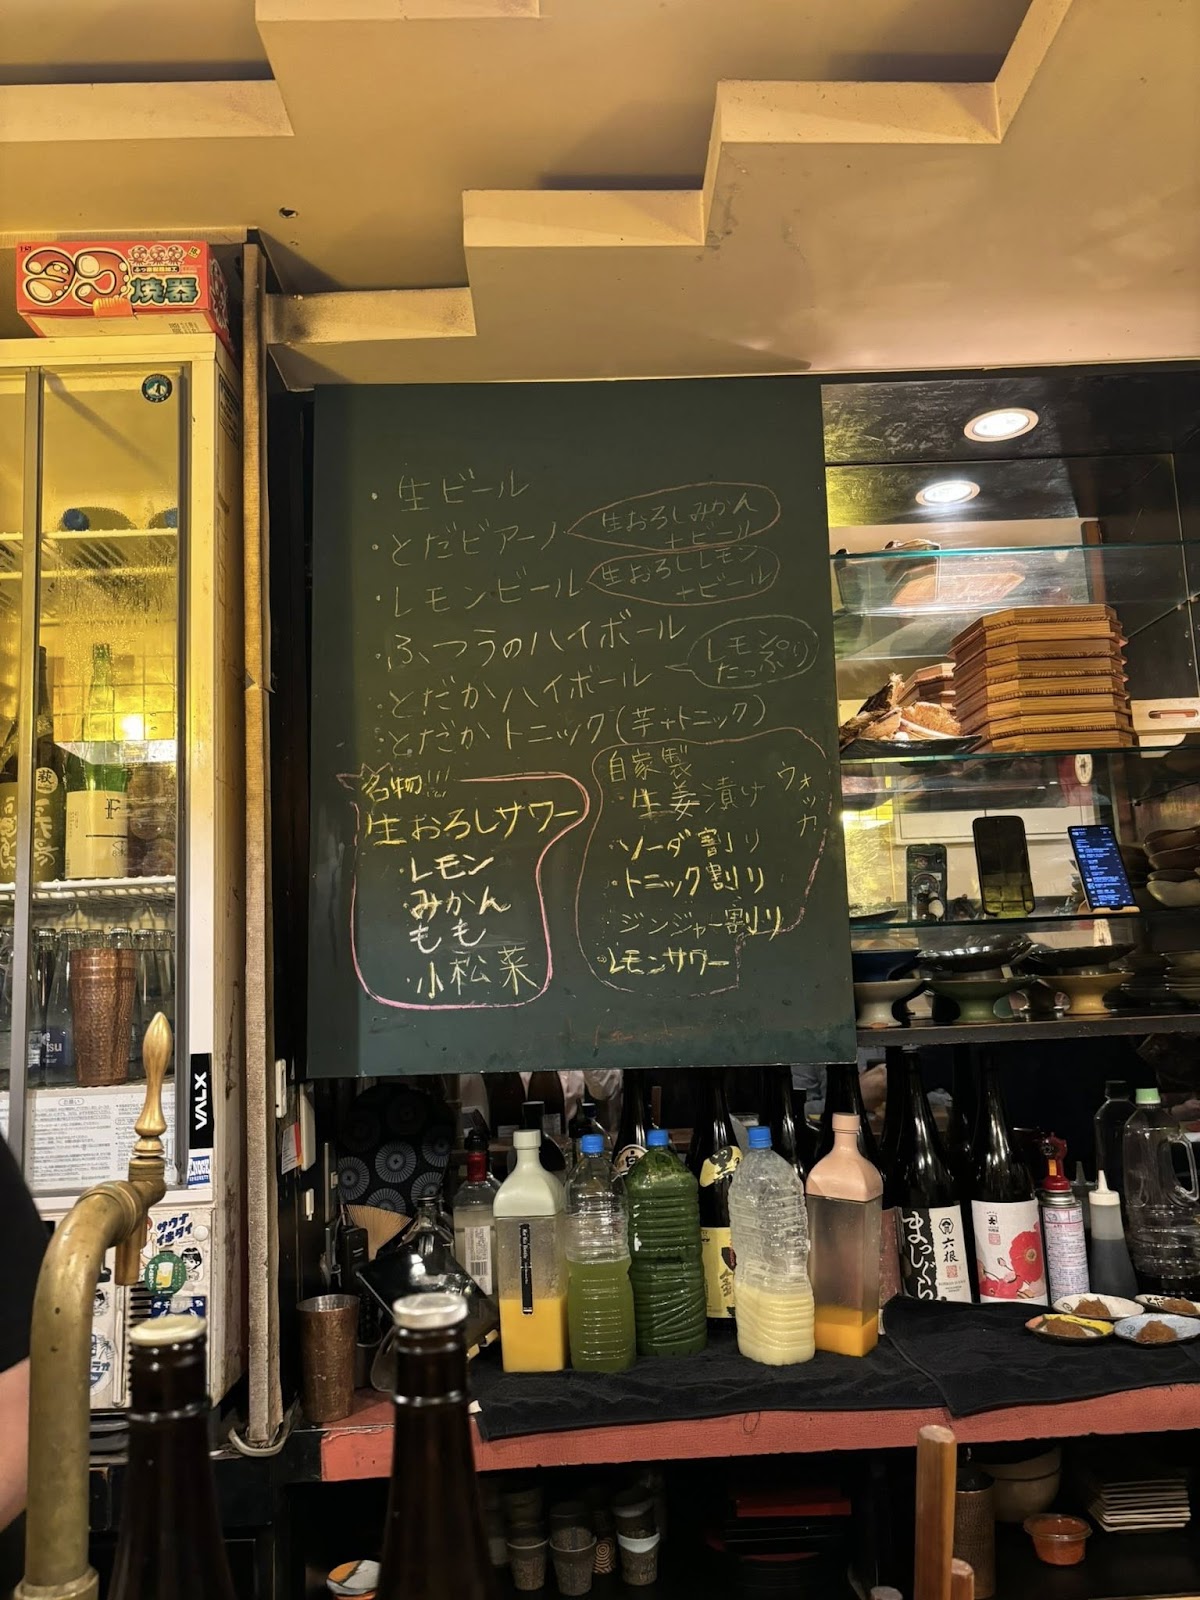 タコ焼器
・生ビール
・とだビアーノ
生おろしみかん
+ビール
・レモンビール
生おろしレモン
+ビール
・ふつうのハイボール
・とだかハイボール
レモン
たっぷり
・とだかトニック(芋+トニック)
名物
生おろしサワー
・レモン
・みかん
もも
・小松菜
自家製
生姜漬け
ウォッカ
・ソーダ割り
・トニック割り
・ジンジャー割り
・レモンサワー
VALX
お願い
サウナ
イキタイ
まっしぐら
六根